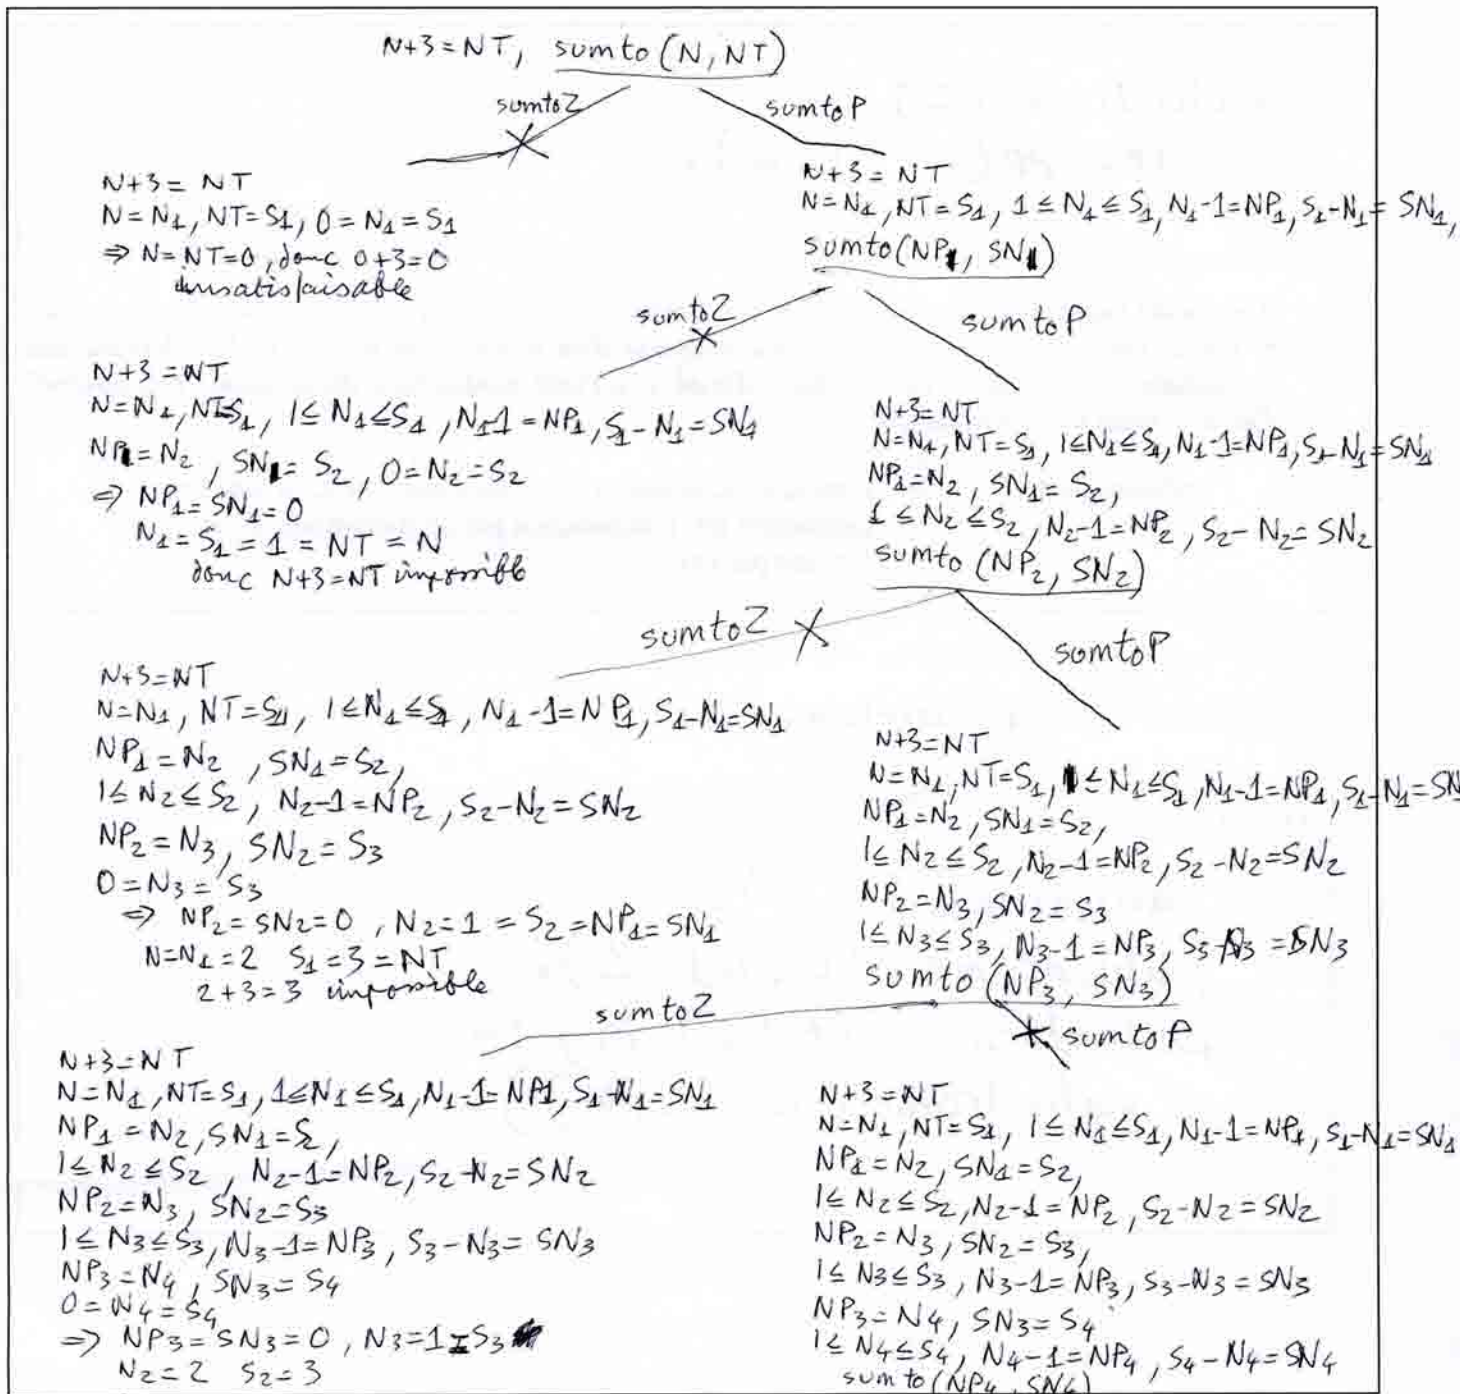 N+3=NT, sumto(N,NT)
sumtoZ
sumtoP
N+3=NT
N=N1, NT=S1, 0=N1=S1
⇒ N=NT=0, donc 0+3=0
insatisfaisable
N+3=NT
N=N1, NT=S1, 1≤N1≤S1, N1-1=NP1, S1-N1=SN1,
sumto(NP1, SN1)
sumtoZ
sumtoP
N+3=NT
N=N1, NT=S1, 1≤N1≤S1, N1-1=NP1, S1-N1=SN1
NP1=N2, SN1=S2, 0=N2=S2
⇒ NP1=SN1=0
N1=S1=1=NT=N
donc N+3=NT impossible
N+3=NT
N=N1, NT=S1, 1≤N1≤S1, N1-1=NP1, S1-N1=SN1
NP1=N2, SN1=S2,
1≤N2≤S2, N2-1=NP2, S2-N2=SN2
sumto(NP2, SN2)
sumtoZ
sumtoP
N+3=NT
N=N1, NT=S1, 1≤N1≤S1, N1-1=NP1, S1-N1=SN1
NP1=N2, SN1=S2,
1≤N2≤S2, N2-1=NP2, S2-N2=SN2
NP2=N3, SN2=S3
0=N3=S3
⇒ NP2=SN2=0, N2=1=S2=NP1=SN1
N=N1=2 S1=3=NT
2+3=3 impossible
N+3=NT
N=N1, NT=S1, 1≤N1≤S1, N1-1=NP1, S1-N1=SN
NP1=N2, SN1=S2,
1≤N2≤S2, N2-1=NP2, S2-N2=SN2
NP2=N3, SN2=S3
1≤N3≤S3, N3-1=NP3, S3-N3=SN3
sumto(NP3, SN3)
sumtoZ
sumtoP
N+3=NT
N=N1, NT=S1, 1≤N1≤S1, N1-1=NP1, S1-N1=SN1
NP1=N2, SN1=S2,
1≤N2≤S2, N2-1=NP2, S2-N2=SN2
NP2=N3, SN2=S3
1≤N3≤S3, N3-1=NP3, S3-N3=SN3
NP3=N4, SN3=S4
0=N4=S4
⇒ NP3=SN3=0, N3=1=S3
N2=2 S2=3
N+3=NT
N=N1, NT=S1, 1≤N1≤S1, N1-1=NP1, S1-N1=SN1
NP1=N2, SN1=S2,
1≤N2≤S2, N2-1=NP2, S2-N2=SN2
NP2=N3, SN2=S3,
1≤N3≤S3, N3-1=NP3, S3-N3=SN3
NP3=N4, SN3=S4
1≤N4≤S4, N4-1=NP4, S4-N4=SN4
sumto(NP4, SN4)